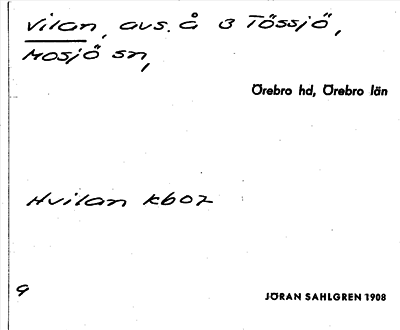 Vilan, avs. å 3 Tössjö,
Mosjö sn,
Örebro hd, Örebro län
Hvilan kb07
9
JÖRAN SAHLGREN 1908